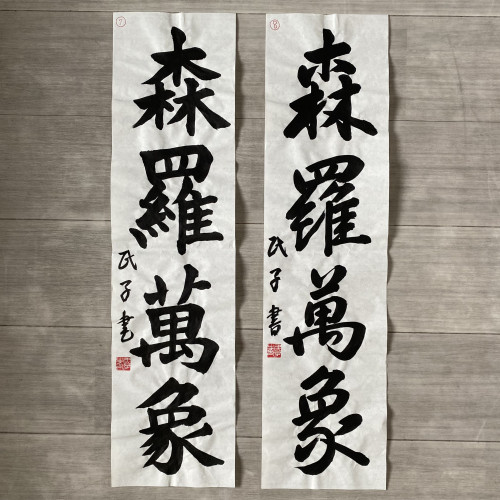 森羅萬象
民子書
森羅萬象
民子書